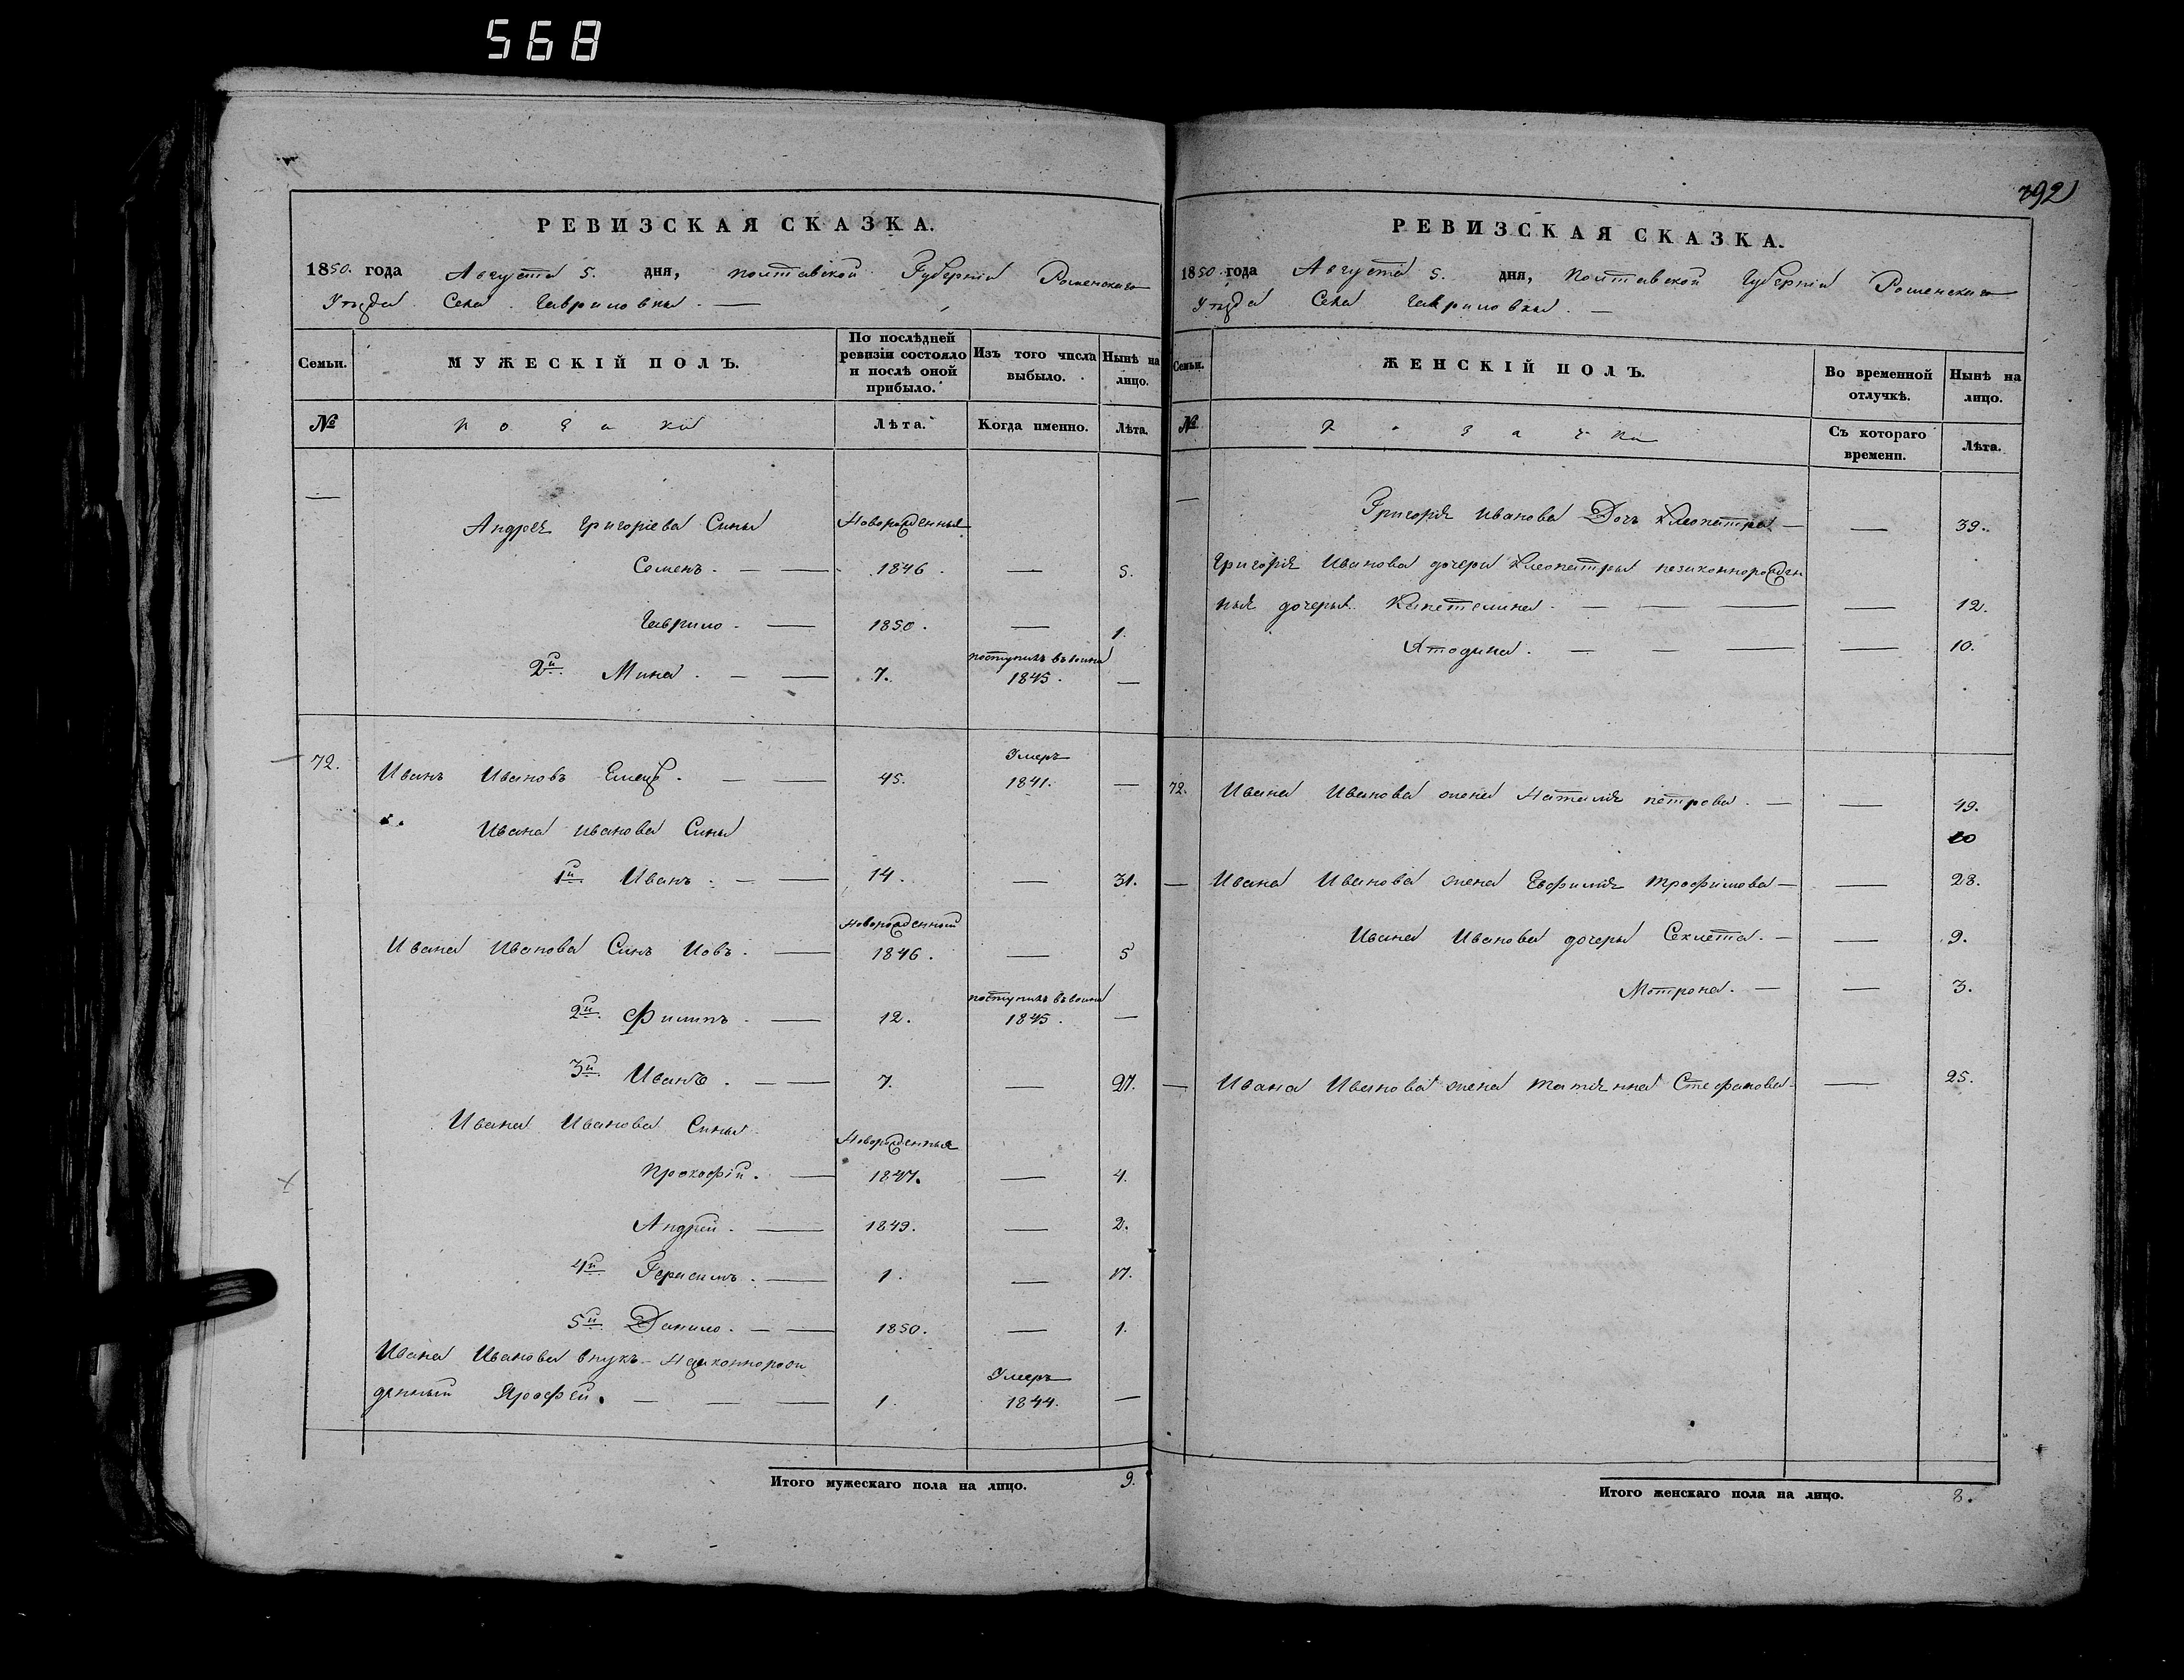 568
РЕВИЗСКАЯ СКАЗКА.
1850. года Августа 5. дня, полтавской Губерніи Роменскаго
Уѣзда Села Гавриловки. —
Семьи.
МУЖЕСКІЙ ПОЛЪ.
По послѣдней ревизіи состояло и послѣ оной прибыло.
Изъ того числа выбыло.
Нынѣ на лицо.
№
козаки
Лѣта.
Когда именно.
Лѣта.
— Андрея Григоріева Сины Новорожденныя
Семенъ. — — 1846. — 5.
Гаврило. — 1850. — 1.
2й Мина. — — 7. поступилъ въ 1845. —
72. Иванъ Ивановъ — — 45. Умеръ 1841. —
Ивана иванова Сины
1й Иванъ. — — 14. — 31.
Новорожденный
Ивана Иванова Синъ Иовъ. — 1846. — 5
2й Филипъ. — 12. поступилъ въ 1845. —
3й Иванъ. — — 7. — 27.
Ивана Иванова Сины Новорожденныя
Прокофій. — 1847. — 4.
Андрей. — 1849. — 2.
4й Герасимъ. — 1. — 17.
5й Данило. — — 1850. — 1.
Ивана Иванова внукъ
Ярофей. — — — 1. Умеръ 1844. —
Итого мужескаго пола на лицо. 9.
392
РЕВИЗСКАЯ СКАЗКА.
1850 года Августа 5. дня, Полтавской Губерніи Роменскаго
Уѣзда Села Гавриловки. —
Семьи.
ЖЕНСКІЙ ПОЛЪ.
Во временной отлучкѣ.
Нынѣ на лицо.
№
козачки
Съ котораго времени.
Лѣта.
— Григорія Иванова Дочь Клеопатра — — 39.
Григорія Иванова дочери Клеопатры незаконнорожден
ныя дочеры — — — — 12.
— — — — 10.
72. Ивана Иванова жена Наталія петрова. — — 49.
— Ивана Иванова жена Евфимія трофимова — — 28.
Ивана Иванова дочеры Секлета. — — 9.
Мотрона. — — 3.
— Ивана Иванова жена татіянна Стефанова — 25.
Итого женскаго пола на лицо. 8.